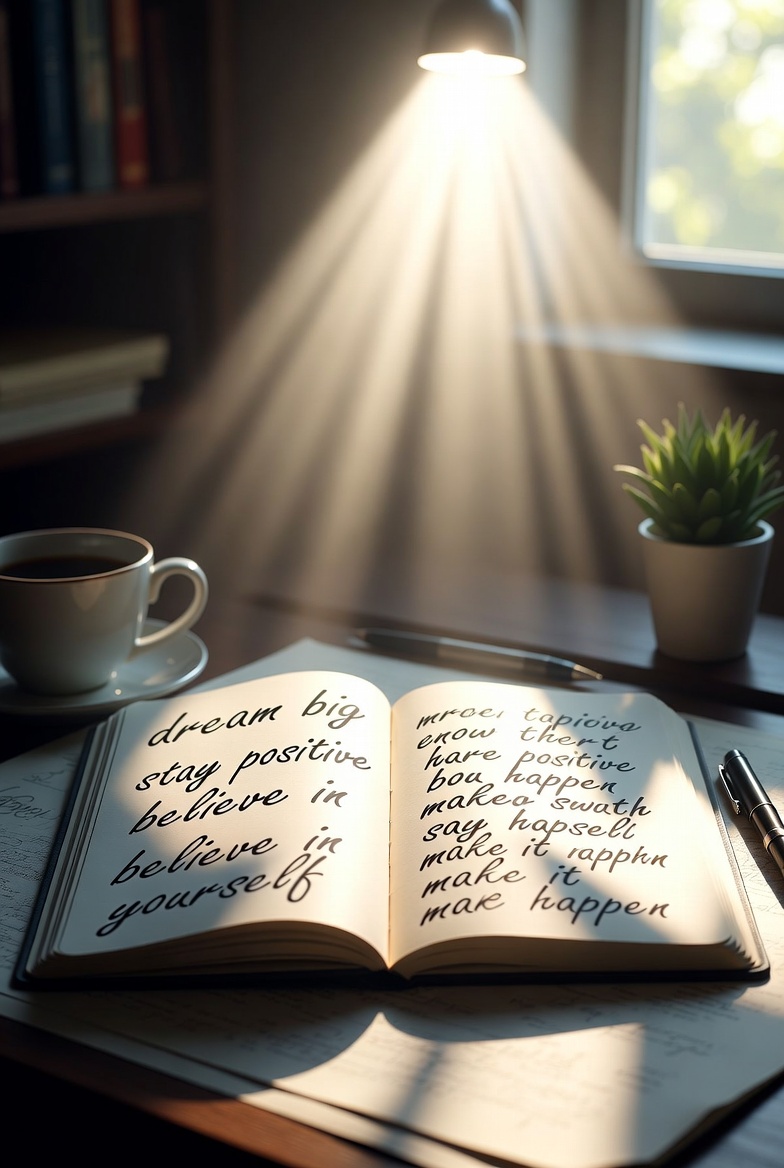 dream big
stay positive
believe in
believe in
yourself
enow thert
hare positive
bou happen
makeo swath
say hapsell
make it rapphn
make it
make happen